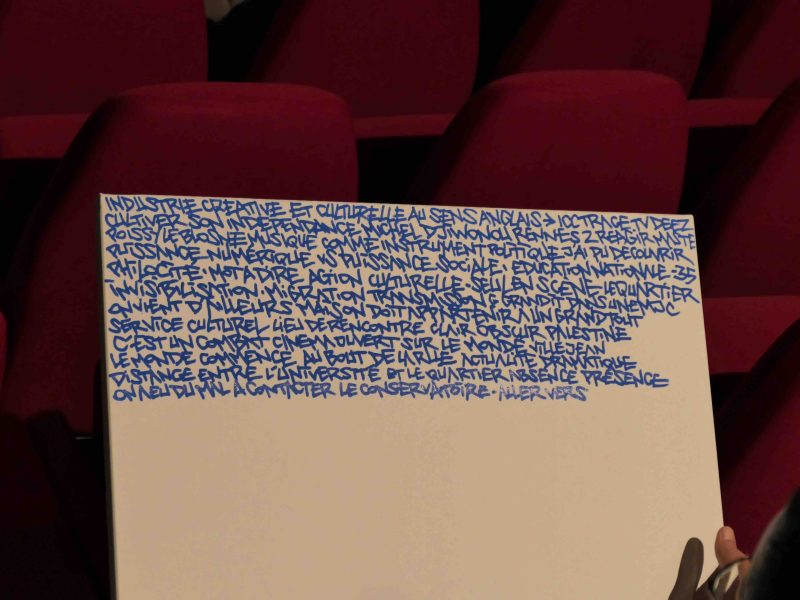 INDUSTRIE CREATIVE ET CULTURELLE AU SENS ANGLAIS → DEEZ
CULTIVER SON INDEPENDANCE MICHEL RENNES 2 REAGIR
MUSIQUE COMME INSTRUMENT POLITIQUE A PU DECOUVRIR
PUISSANCE NUMERIQUE VS PUISSANCE SOCIALE. EDUCATION NATIONALE
PHILOCITE. MOT A DIRE ACTION CULTURELLE. SEUL EN SCENE LE QUARTIER
INVISIBILISATION. MIGRATION TRANSMISSION GRANDIT DANS UNE MJC
ON VIENT D'AILLEURS MAISON DOIT APPARTENIR A UN
SERVICE CULTUREL LIEU DE RENCONTRE CLAIR OBSCUR PALESTINE
C'EST UN COMBAT CINEMA OUVERT SUR LE MONDE VILLEJEAN
LE MONDE COMMENCE AU BOUT DE LA RUE ACTUALITE PRATIQUE
DISTANCE ENTRE L'UNIVERSITE ET LE QUARTIER ABSENCE PRESENCE
ON A EU DU MAL A CONTACTER LE CONSERVATOIRE. ALLER VERS